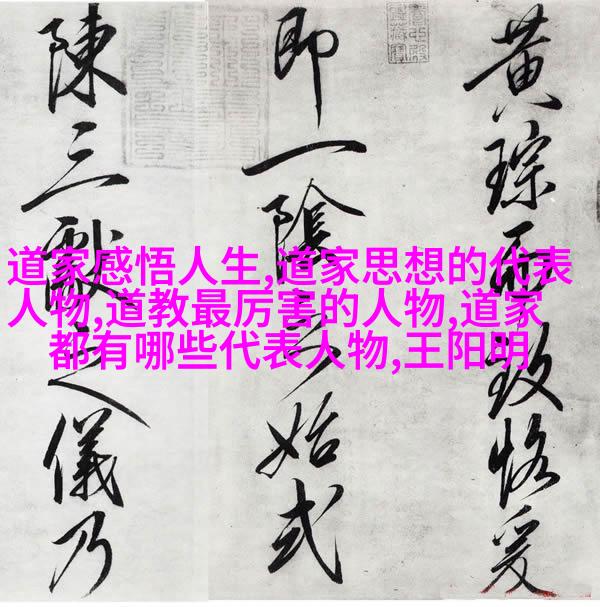 道家感悟人生,道家思想的代表
人物,道教最厉害的人物,道家
都有哪些代表人物,王阳明
黄琮而致恪爰
即一陰之始式
陳三獻之儀乃